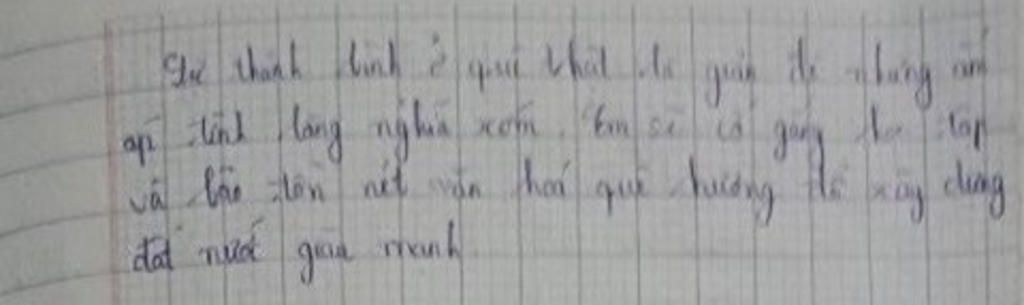 Sự thanh bình ở quê thật là giản dị nhưng ấm
áp tình làng nghĩa xóm. Em sẽ cố gắng học tập
và bảo tồn nét văn hoá quê hương để xây dựng
đất nước giàu mạnh